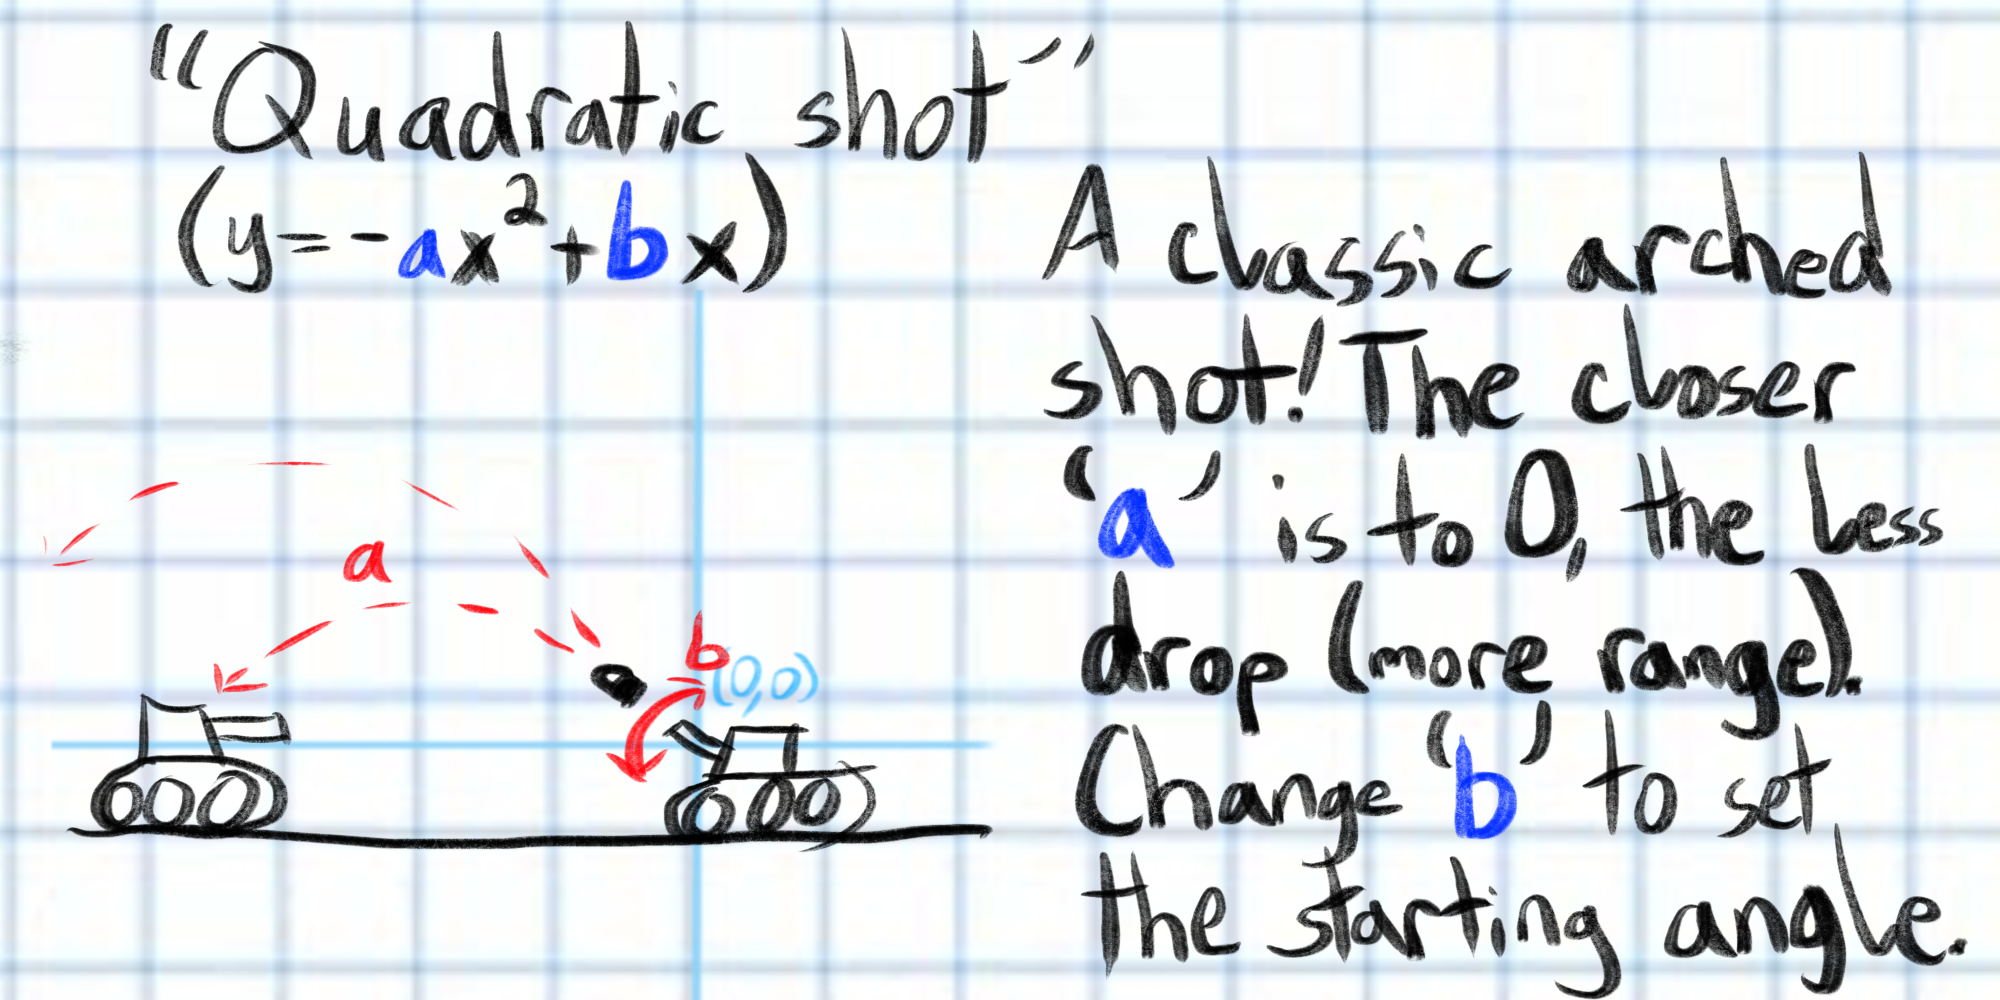 "Quadratic shot"
(y=-ax²+bx)
A classic arched
shot! The closer
'a' is to 0, the less
drop (more range).
Change 'b' to set
the starting angle.
a
b
(0,0)